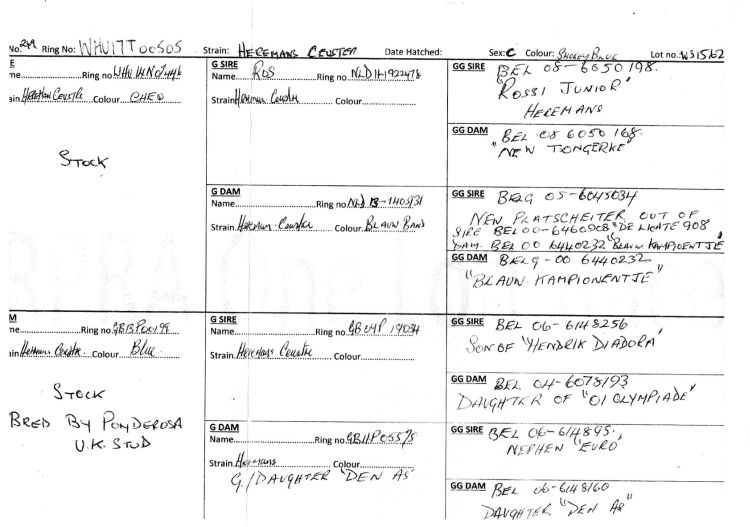 No. 249 Ring No: WHU17T00505 Strain: HEREMANS CEUSTER Date Hatched: Sex: C Colour: SMOKEY BLUE Lot no.
E
me Ring no WHU
ain HEREMAN CEUSTRE Colour CHEQ
STOCK
G SIRE
Name ROS Ring no NLD 11-1922478
Strain Herman Ceustre Colour
G DAM
Name Ring no NLD 13-1405931
Strain Herman Ceustre Colour BLAUW BAND
GG SIRE BEL 05-6050198.
"ROSSI JUNIOR"
HEREMANS
GG DAM BEL 08 6050168.
"NEW TONGERKE"
GG SIRE BELG 05-6045034
NEW PLATSCHEITER OUT OF
SIRE BEL 00-6460908 "DE LICATE 908"
DAM. BEL 00 6440232 "BLAUW KAMPIOENTJE"
GG DAM BELG-00 6440232
"BLAUW. KAMPIONENTJE"
M
me Ring no. GB13P00199
ain Hermans Ceustre Colour Blue.
STOCK
BRED BY PONDEROSA
U.K. STUD
G SIRE
Name Ring no GB 04P 17034
Strain Heremans Ceustre Colour
G DAM
Name Ring no GB11P05575
Strain Hermans Colour
G/DAUGHTER "DEN AS"
GG SIRE BEL 06-6148256
SON OF "HENDRIK DIADORA"
GG DAM BEL 04-6078193
DAUGHTER OF "01 OLYMPIADE"
GG SIRE BEL 06-614895.
NEPHEN "EURO"
GG DAM BEL 06-6148160
DAUGHTER "DEN AS"